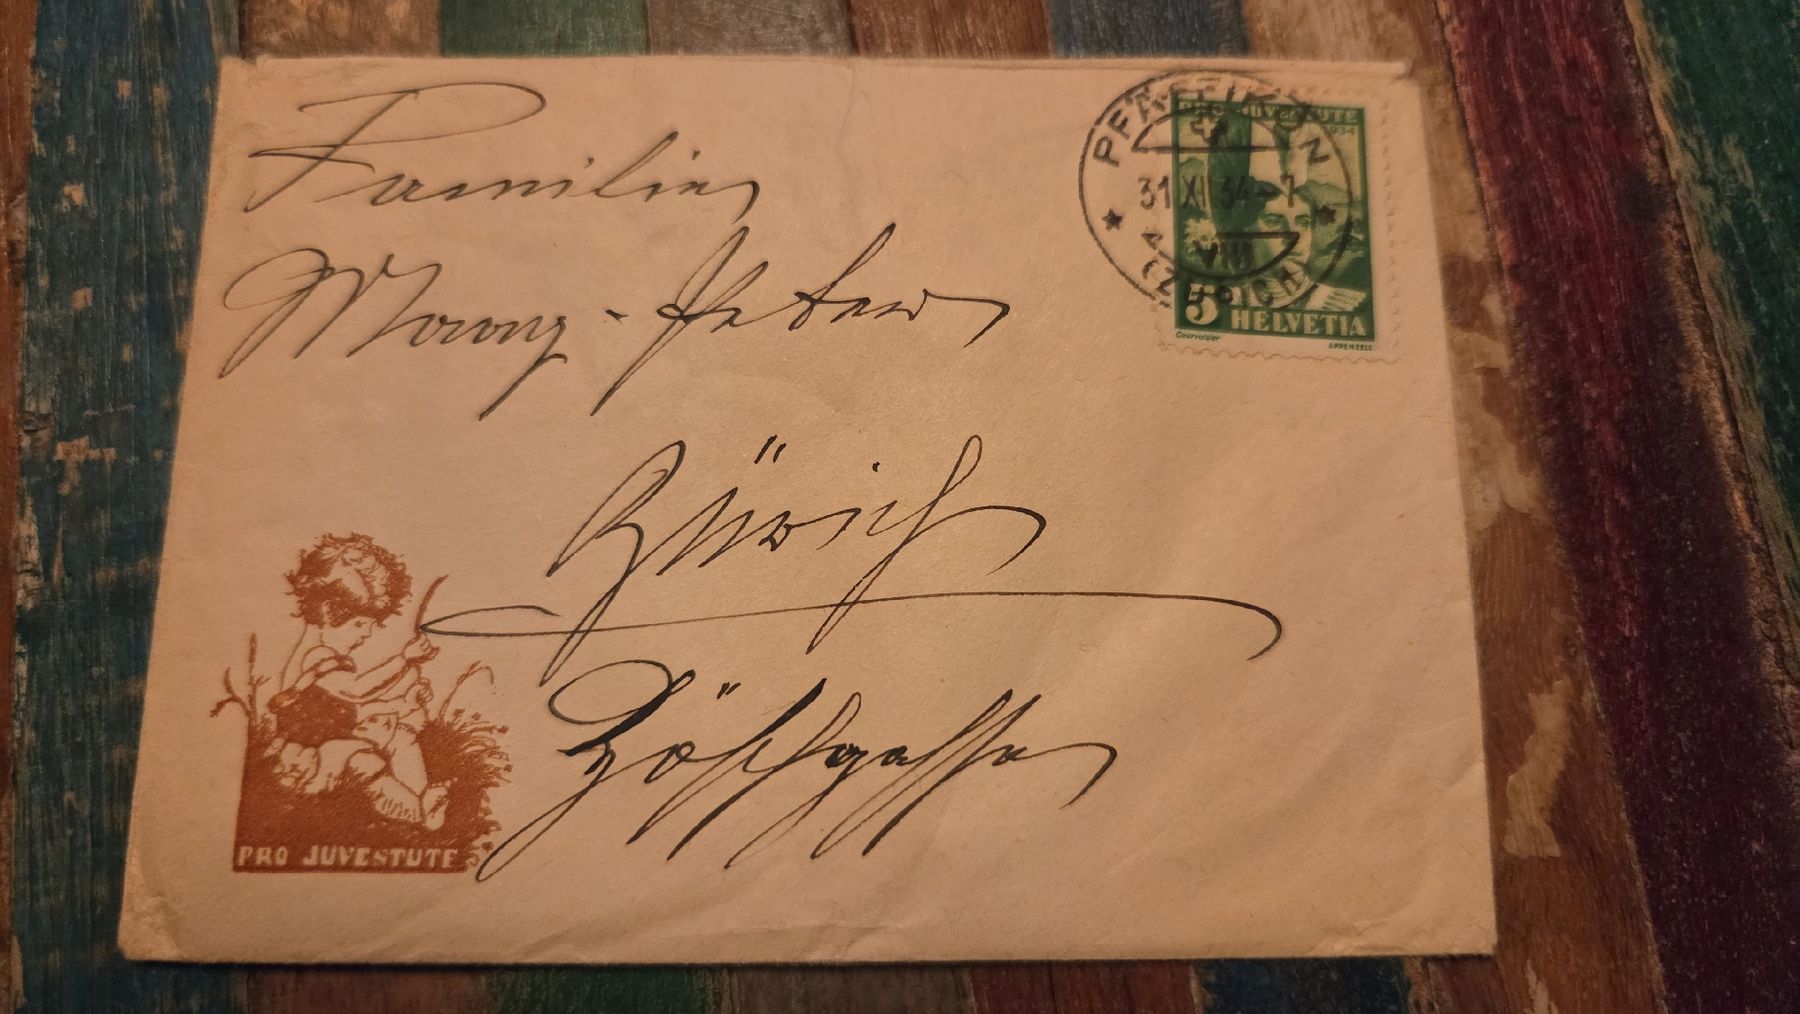 PRO JUVENTUTE
1934
PFÄFFIKON
31 XII 34-7
VIII
(ZÜRICH)
5 HELVETIA
Courvoisier APPENZELL
Familie
Peter
Zürich
PRO JUVENTUTE